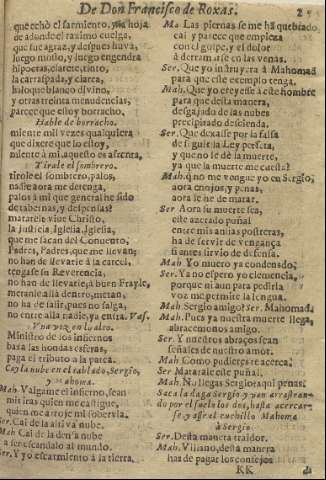 De Don Francisco de Roxas. 2
que echò el sarmiento, y la hoja
de adonde el razimo cuelga,
que fue agraz, y despues huva,
luego mosto, y luego engendra
hipocras, clarete, tinto,
la carraspada, y clarea,
haloque blanco divino,
y otras treinta menudencias,
parece que estoy borracho.
Hable de borracho.
miente mil vezes qualquiera
que dixere que lo estoy,
miente à mi, aquesto es afrenta,
Tirale el sombrero.
tirole el sombrero, palos,
nadie aora me detenga,
palos à mi que general he sido
de tabernas, y despensas?
matarèle vive Christo,
la justicia, Iglesia, Iglesia,
que me sacan del Convento,
Padres, Padres, que me llevan;
no han de llevarle à la carcel,
tengase su Reverencia,
no han de llevarle, à buen Frayle,
metanle allà dentro, metan,
no ha de salir, pues no salga,
no entre allà nadie, ya entra. Vas.
Vna voz en lo alto.
Ministro de los infiernos
baxa las hondas esferas,
paga el tributo a la parca.
Cay la nube en el tablado, Sergio,
y Mahoma.
Mah. Valgame el infierno, sean
mis iras quien me castigue,
quien me arroje mi sobervia.
Ser. Cai de la altiva nube.
Mah. Cai de la densa nube
a ser escandalo al mundo.
Ser. Y yo escarmiento à la tierra.
Ma. Las piernas se me hã quebrado,
cai y parece que empieza
con el golpe, y el dolor
à derramarse en las venas.
Ser. Que yo instruyera à Mahoma
para que este exemplo tenga.
Mah. Que yo creyesse à este hombre
para que desta manera,
desgajado de las nubes
precipitado descienda.
Ser. Que dexasse por la falsa
de seguir la Ley perfeta,
y que no le dè la muerte,
ya que la muerte me cuesta?
Mah. q no me vengue yo en Sergio,
aora enojos, y penas,
aora le he de matar.
Ser. Aora su muerte sea,
este azerado puñal
entre mis ansias postreras,
ha de servir de vengança
si antes sirviò de defensa.
Mah. Yo muero ya condensdo;
Ser. Ya no espero yo clemencia,
porque ni aun para pedirla
voz me permite la lengua.
Mah. Sergio amigo? Ser. Mahoma
Mah. Pues ya nuestra muerte llega,
abracemonos amigo.
Ser. Y nuestros abraços sean
señales de nuestro amor.
Mah. Como pudiere te acerca.
Ser. Matarale este puñal.
Mah. No llegas Sergio a aqui penas.
Saca la daga Sergio y van arrastran-
do por el suelo los dos, hasta acercar-
se, y asga el cuchillo Mahoma
à Sergio.
Ser. Desta manera traidor.
Mah. Villano, desta manera
has de pagar los consejos
KK da